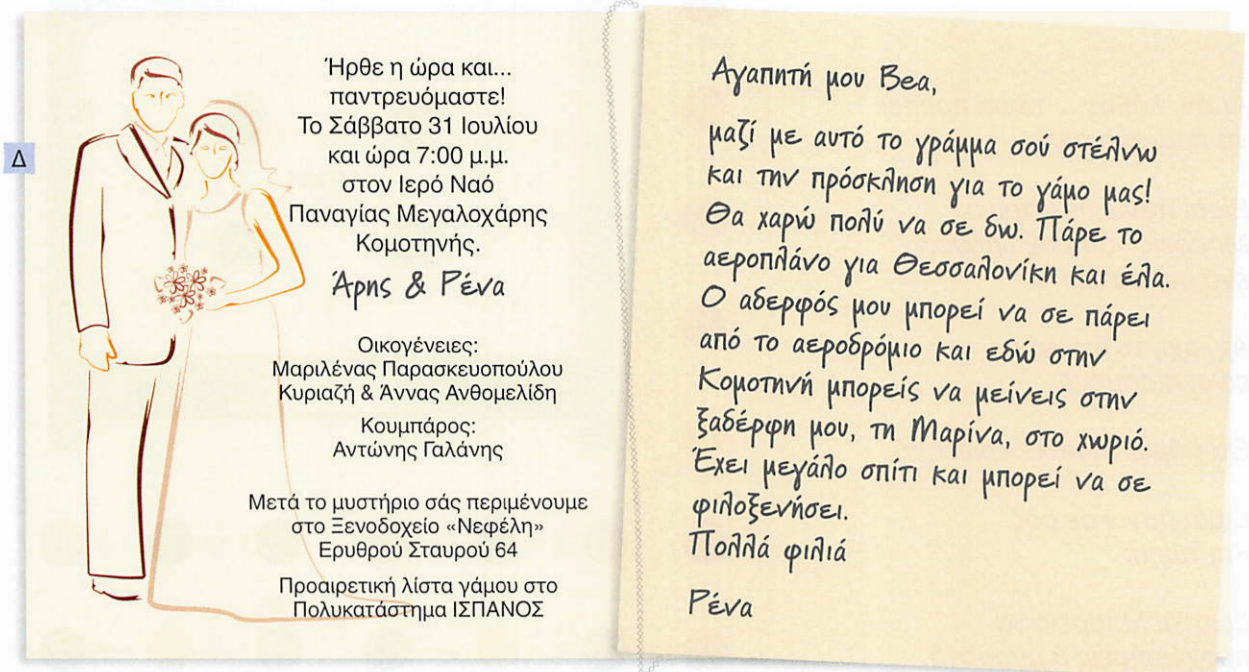 Δ
Ήρθε η ώρα και...
παντρευόμαστε!
Το Σάββατο 31 Ιουλίου
και ώρα 7:00 μ.μ.
στον Ιερό Ναό
Παναγίας Μεγαλοχάρης
Κομοτηνής.
Άρης & Ρένα
Οικογένειες:
Μαριλένας Παρασκευοπούλου
Κυριαζή & Άννας Ανθομελίδη
Κουμπάρος:
Αντώνης Γαλάνης
Μετά το μυστήριο σάς περιμένουμε
στο Ξενοδοχείο «Νεφέλη»
Ερυθρού Σταυρού 64
Προαιρετική λίστα γάμου στο
Πολυκατάστημα ΙΣΠΑΝΟΣ
Αγαπητή μου Bea,
μαζί με αυτό το γράμμα σού στέλνω
και την πρόσκληση για το γάμο μας!
Θα χαρώ πολύ να σε δω. Πάρε το
αεροπλάνο για Θεσσαλονίκη και έλα.
Ο αδερφός μου μπορεί να σε πάρει
από το αεροδρόμιο και εδώ στην
Κομοτηνή μπορείς να μείνεις στην
ξαδέρφη μου, τη Μαρίνα, στο χωριό.
Έχει μεγάλο σπίτι και μπορεί να σε
φιλοξενήσει.
Πολλά φιλιά
Ρένα